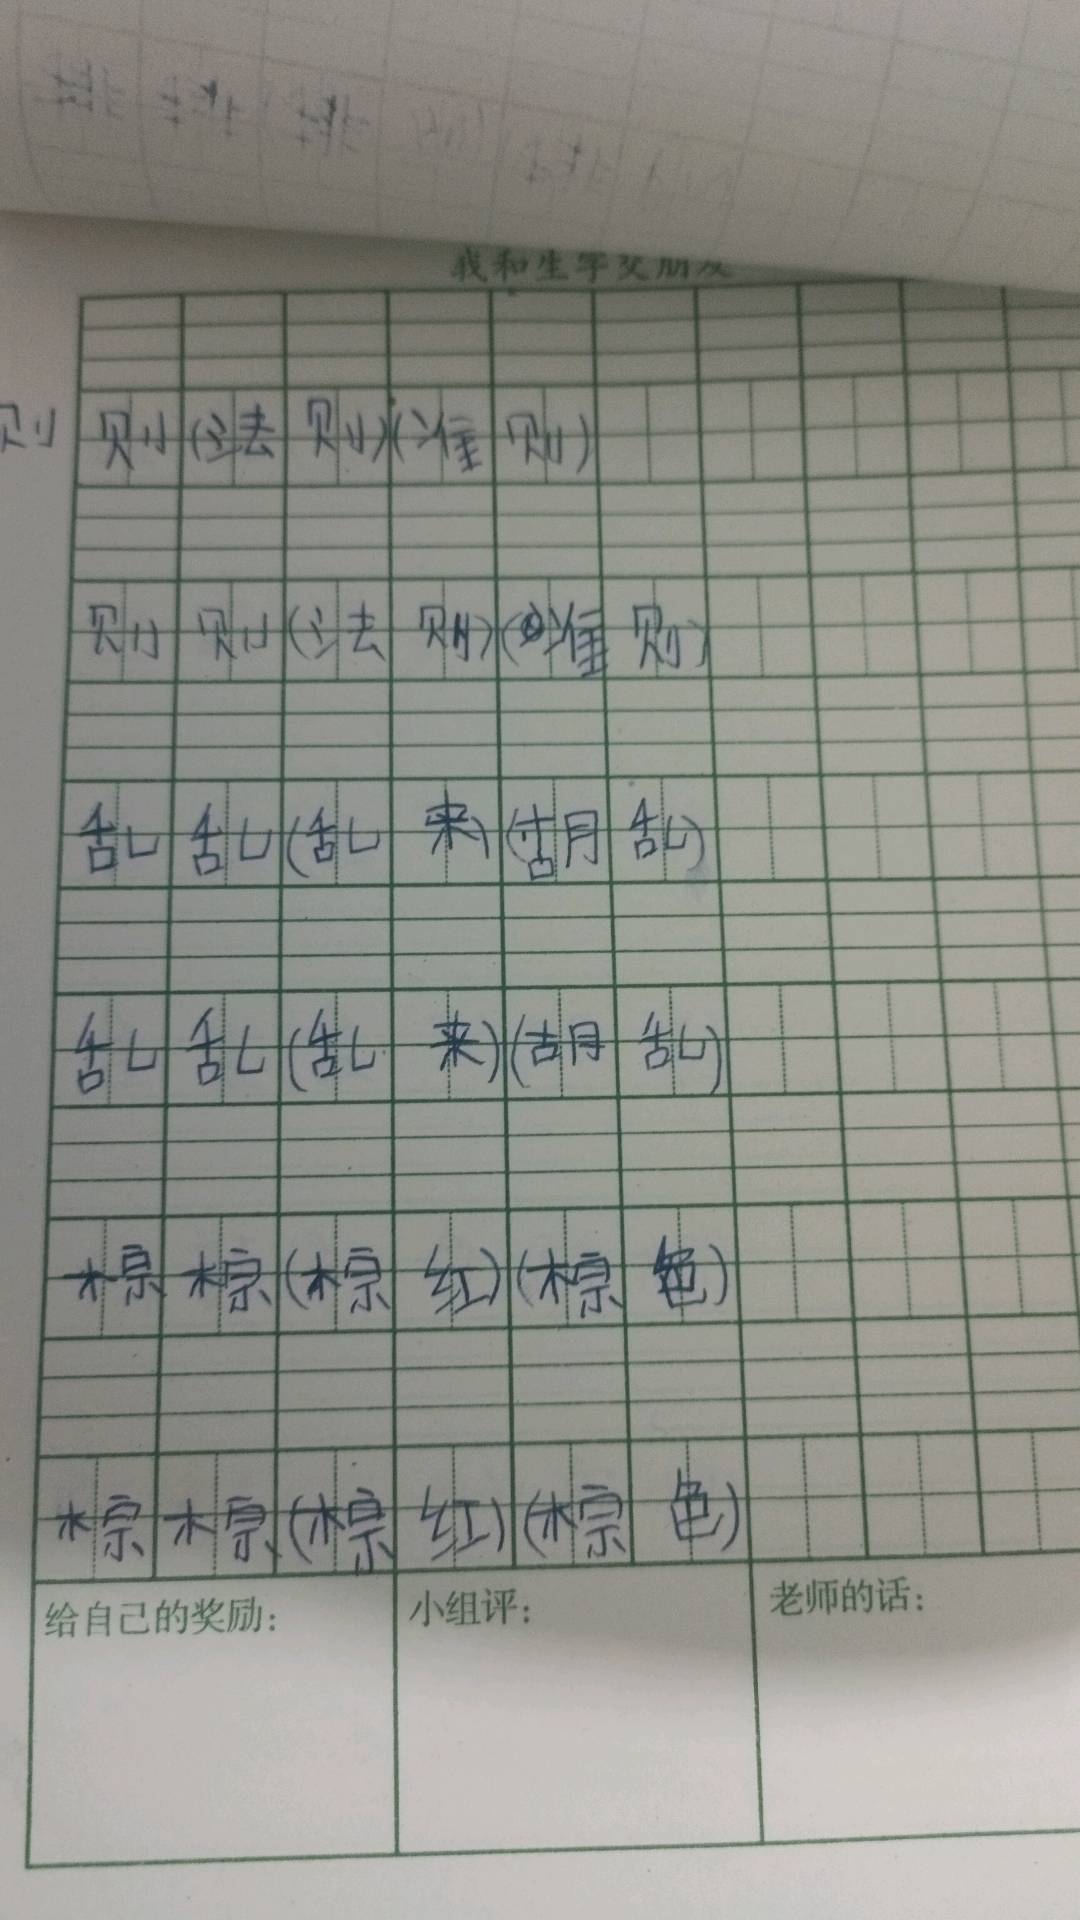 我和生字交朋友
则 则(法则)(准则)
则 则(法则)(准则)
乱 乱(乱来)(胡乱)
乱 乱(乱来)(胡乱)
棕 棕(棕红)(棕色)
棕 棕(棕红)(棕色)
给自己的奖励: 小组评: 老师的话: